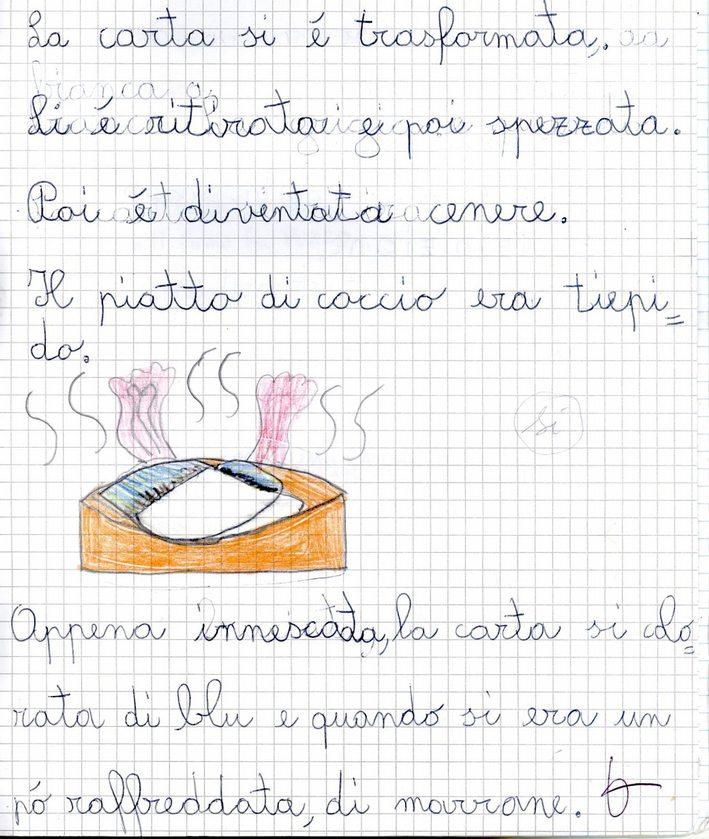 La carta si é trasformata.
Si é ritirata e poi spezzata.
Poi é diventata cenere.
Il piatto di coccio era tiepi=
do.
si
Appena innescata, la carta si colo=
rata di blu e quando si era un
pó raffreddata, di marrone.